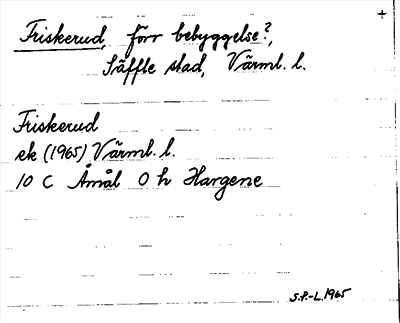 +
Friskerud, förr bebyggelse?,
Säffle stad, Värml. l.
Friskerud
ek (1965) Värml. l.
10 C Åmål 0 h Hargene
S.P.-L. 1965